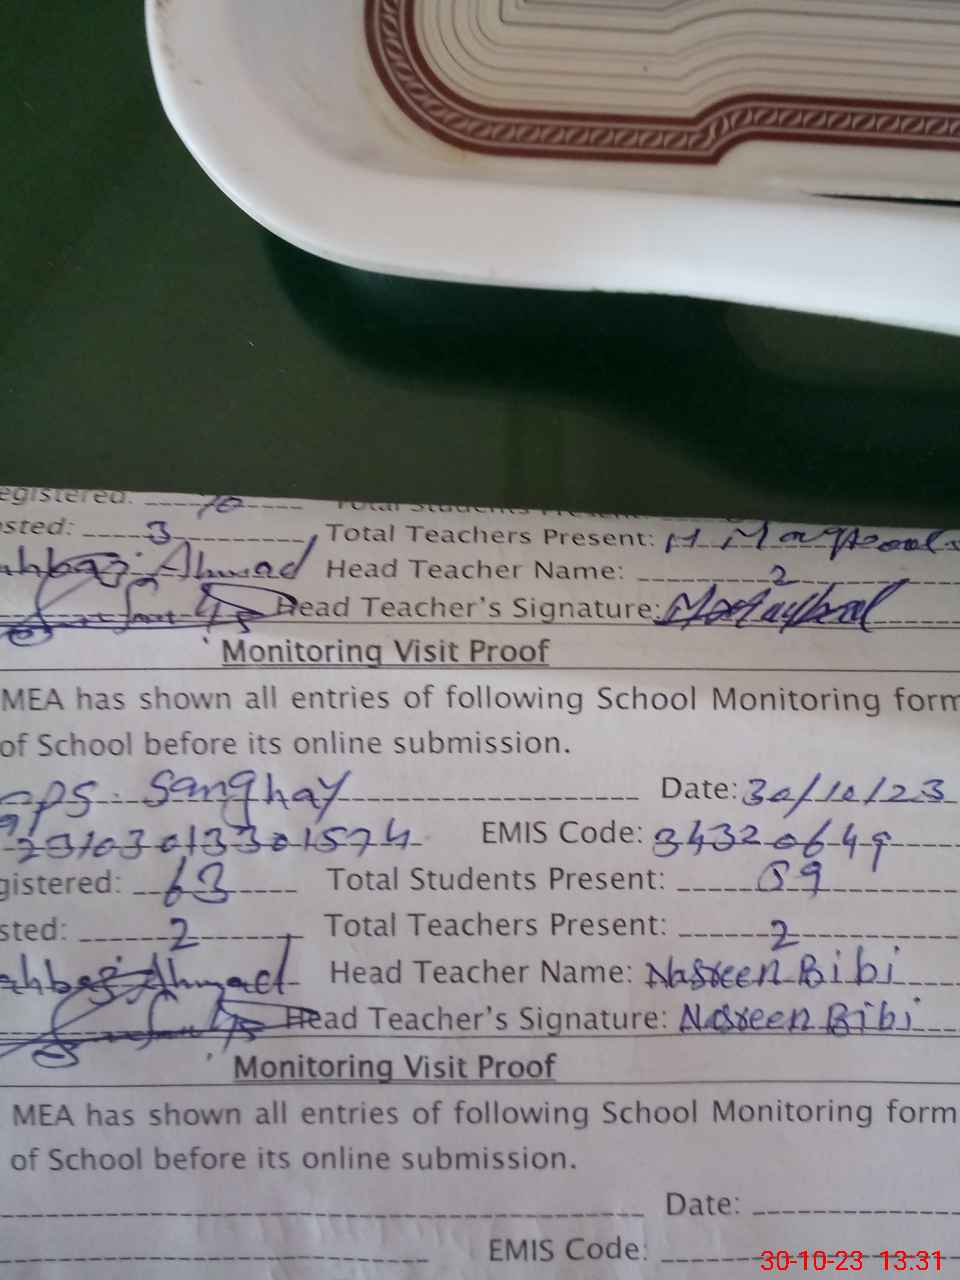 egistered: 70 Total Students Present:
sted: 3 Total Teachers Present: M. Maqsood
ahbaz Ahmad Head Teacher Name: 2
Head Teacher's Signature:
Monitoring Visit Proof
MEA has shown all entries of following School Monitoring form
of School before its online submission.
GPS. Sanghay Date: 30/10/23
23103013301574 EMIS Code: 34320649
gistered: 63 Total Students Present: 59
sted: 2 Total Teachers Present: 2
ahbaz Ahmad Head Teacher Name: Nasreen Bibi
Head Teacher's Signature: Nasreen Bibi
Monitoring Visit Proof
MEA has shown all entries of following School Monitoring form
of School before its online submission.
Date:
EMIS Code:
30-10-23 13:31